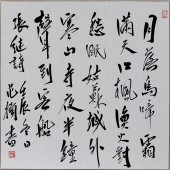 月落烏啼霜
滿天江楓漁火對
愁眠姑蘇城外
寒山寺夜半鐘
聲到客船
張継詩 壬辰冬日
書